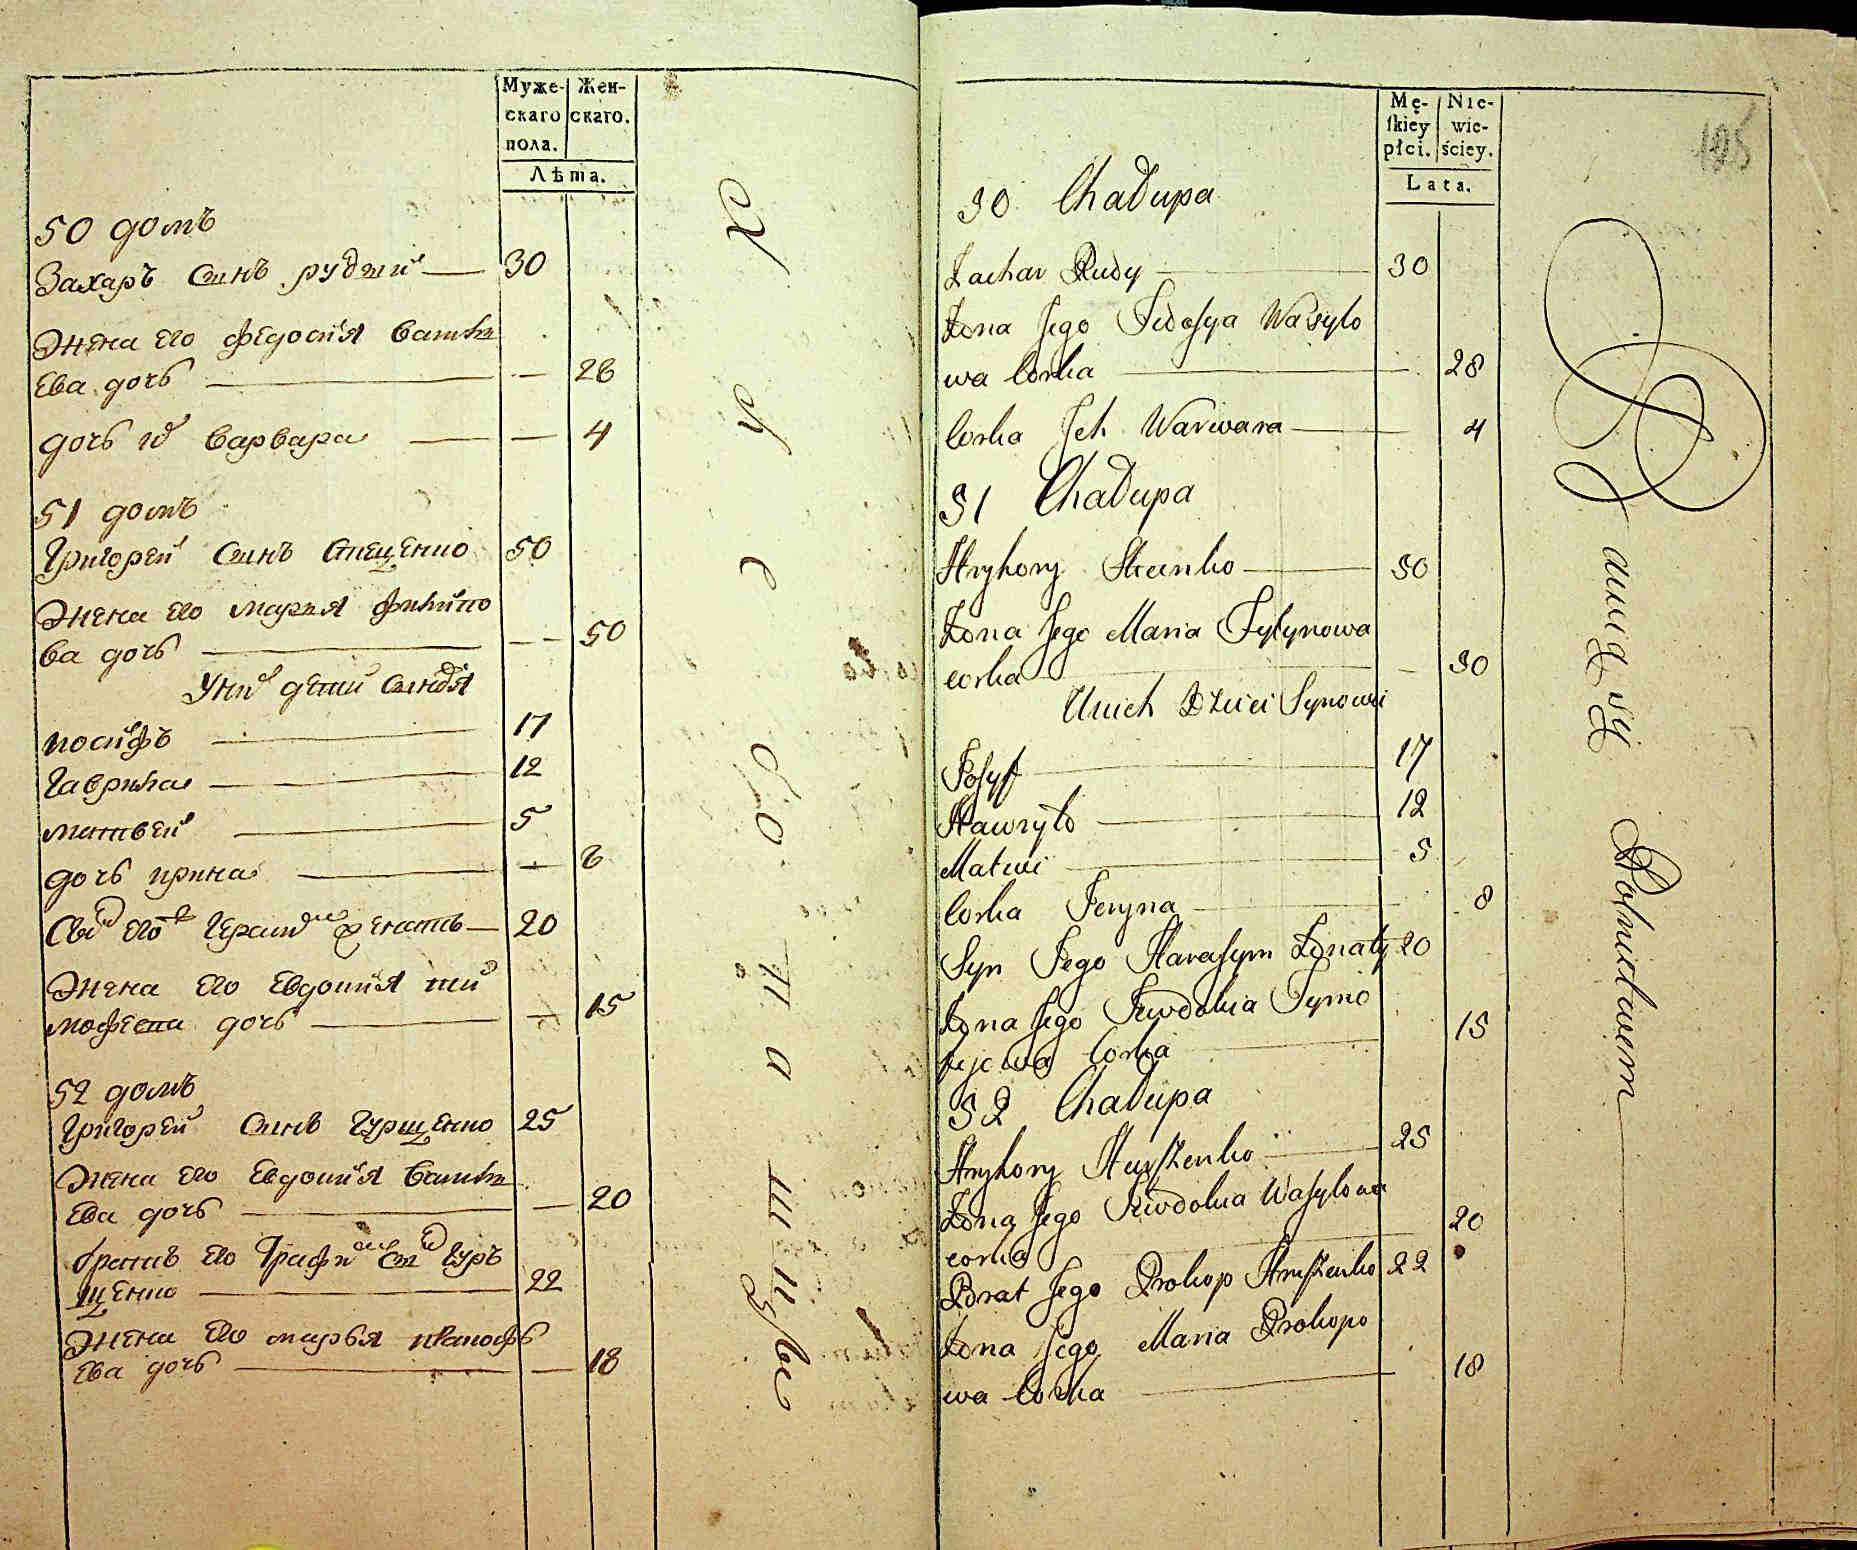 Муже- Жен-
скаго скаго.
пола.
Лѣта.
50 домъ
Захаръ Синъ рудий 30
Жена его федосия Васи
ева дочъ 28
дочъ их варвара 4
51 домъ
Григорей Синъ Стеценко 50
Жена его мария филипо
ва дочъ 50
У них дети Синовя
иосифъ 17
Гаврила 12
матвей 5
дочъ ирина 8
его Герасим женатъ 20
Жена его Евдокия ти
мофеева дочъ 15
52 домъ
Григорей Синъ Гурщенко 25
Жена его Евдокия Васи
ева дочъ 20
братъ его Гуръ
щенко 22
Жена его марья
ева дочъ 18
Mę- Nie-
skiey wie-
płci. ściey.
Lata.
195
50 Chałupa
Zachar Rudy 30
Żona Jego Fedosya Wasylo
wa Corka 28
Corka Jch Warwara 4
51 Chałupa
Hryhory Stecenko 50
Żona Jego Maria Fylypowa
corka 50
Unich Dzieci Synowie
Josyf 17
Hawryło 12
Matwi 5
Corka Jeryna 8
Syn Jego Harasym Żonaty 20
Żona Jego Jewdokia Tymo
fijowa Corka 15
52 Chałupa
Hryhory Hurszenko 25
Żona Jego Jewdokia Wasylowa
corka 20
Brat Jego Prokop Hurszenko 22
Żona Jego Maria Prokopo
wa Corka 18